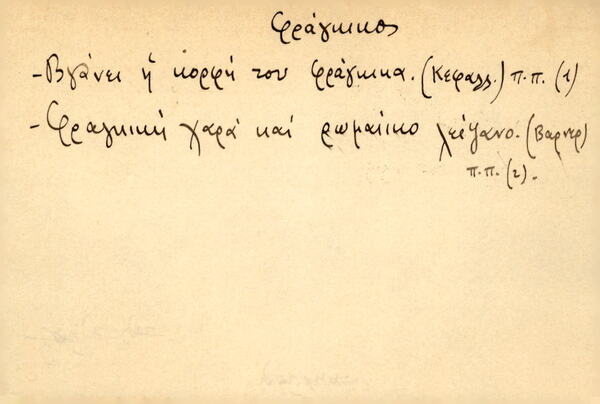 φράγκικος
- Βγάνει ἡ κορφή του φράγκικα. (Κεφαλλ.) π.π. (1)
- Φραγκική χαρά καί ρωμαίικο λείψανο. (Βαρνερ)
π.π. (2).